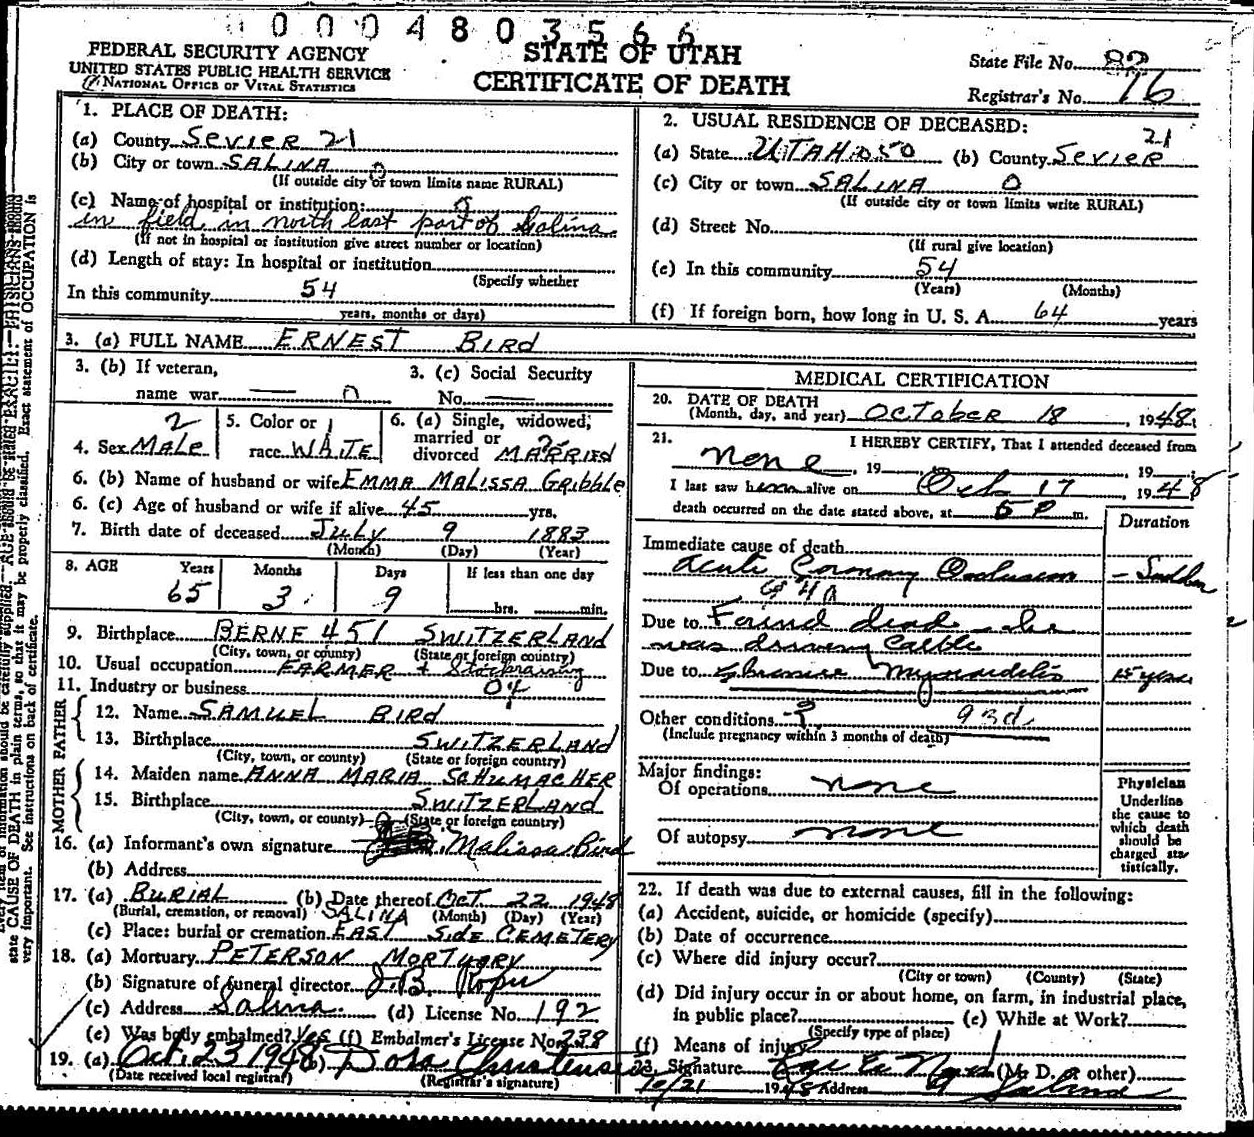 0004803566
FEDERAL SECURITY AGENCY
UNITED STATES PUBLIC HEALTH SERVICE
NATIONAL OFFICE OF VITAL STATISTICS
STATE OF UTAH
CERTIFICATE OF DEATH
State File No. 82
Registrar's No. 76
1. PLACE OF DEATH:
(a) County SEVIER 21
(b) City or town SALINA 0
(If outside city or town limits name RURAL)
(c) Name of hospital or institution: 0
in field in north east part of Salina
(If not in hospital or institution give street number or location)
(d) Length of stay: In hospital or institution
(Specify whether
In this community 54
years, months or days)
2. USUAL RESIDENCE OF DECEASED:
21
(a) State UTAH 050 (b) County SEVIER
(c) City or town SALINA 0
(If outside city or town limits write RURAL)
(d) Street No.
(If rural give location)
(e) In this community 54
(Years) (Months)
(f) If foreign born, how long in U. S. A. 64 years
3. (a) FULL NAME ERNEST BIRD
3. (b) If veteran,
name war 0
3. (c) Social Security
No.
4. Sex MALE 2
5. Color or 1
race WHITE
6. (a) Single, widowed,
married or 2
divorced MARRIED
6. (b) Name of husband or wife EMMA MALISSA Gribble
6. (c) Age of husband or wife if alive 45 yrs.
7. Birth date of deceased July 9 1883
(Month) (Day) (Year)
8. AGE Years Months Days If less than one day
65 3 9 hrs. min.
9. Birthplace BERNE 451 SWITZERLAND
(City, town, or county) (State or foreign country)
10. Usual occupation FARMER + Stockraising
11. Industry or business 04
FATHER
12. Name SAMUEL BIRD
13. Birthplace SWITZERLAND
(City, town, or county) (State or foreign country)
MOTHER
14. Maiden name ANNA MARIA SCHUMACHER
15. Birthplace SWITZERLAND
(City, town, or county) (State or foreign country)
16. (a) Informant's own signature Malissa Bird
(b) Address
17. (a) BURIAL (b) Date thereof Oct 22 1948
(Burial, cremation, or removal) (Month) (Day) (Year)
SALINA
(c) Place: burial or cremation EAST SIDE CEMETERY
18. (a) Mortuary PETERSON MORTUARY
(b) Signature of funeral director J.B.
(c) Address Salina (d) License No. 192
(e) Was body embalmed? Yes (f) Embalmer's License No. 238
19. (a) Oct. 23 1948 (b) Dora Christensen
(Date received local registrar) (Registrar's signature)
MEDICAL CERTIFICATION
20. DATE OF DEATH
(Month, day, and year) OCTOBER 18, 1948
21. I HEREBY CERTIFY, That I attended deceased from
none, 19 , 19
I last saw him alive on Oct 17 1948
death occurred on the date stated above, at 5 P m.
Duration
Immediate cause of death
Acute Coronary Occlusion - Sudden
94A
Due to Found dead - he
was driving Cattle
Due to Chronic Myocarditis 15 years
Other conditions ? 93d
(Include pregnancy within 3 months of death)
Major findings:
Of operations none
Of autopsy none
Physician
Underline
the cause to
which death
should be
charged sta-
tistically.
22. If death was due to external causes, fill in the following:
(a) Accident, suicide, or homicide (specify)
(b) Date of occurrence
(c) Where did injury occur?
(City or town) (County) (State)
(d) Did injury occur in or about home, on farm, in industrial place,
in public place? (e) While at Work?
(Specify type of place)
(f) Means of injury
23. Signature (M. D. or other)
10/21 1948 Address Salina
state CAUSE OF DEATH in plain terms, so that it may be properly classified. Exact statement of OCCUPATION is
very important. See instructions on back of certificate.